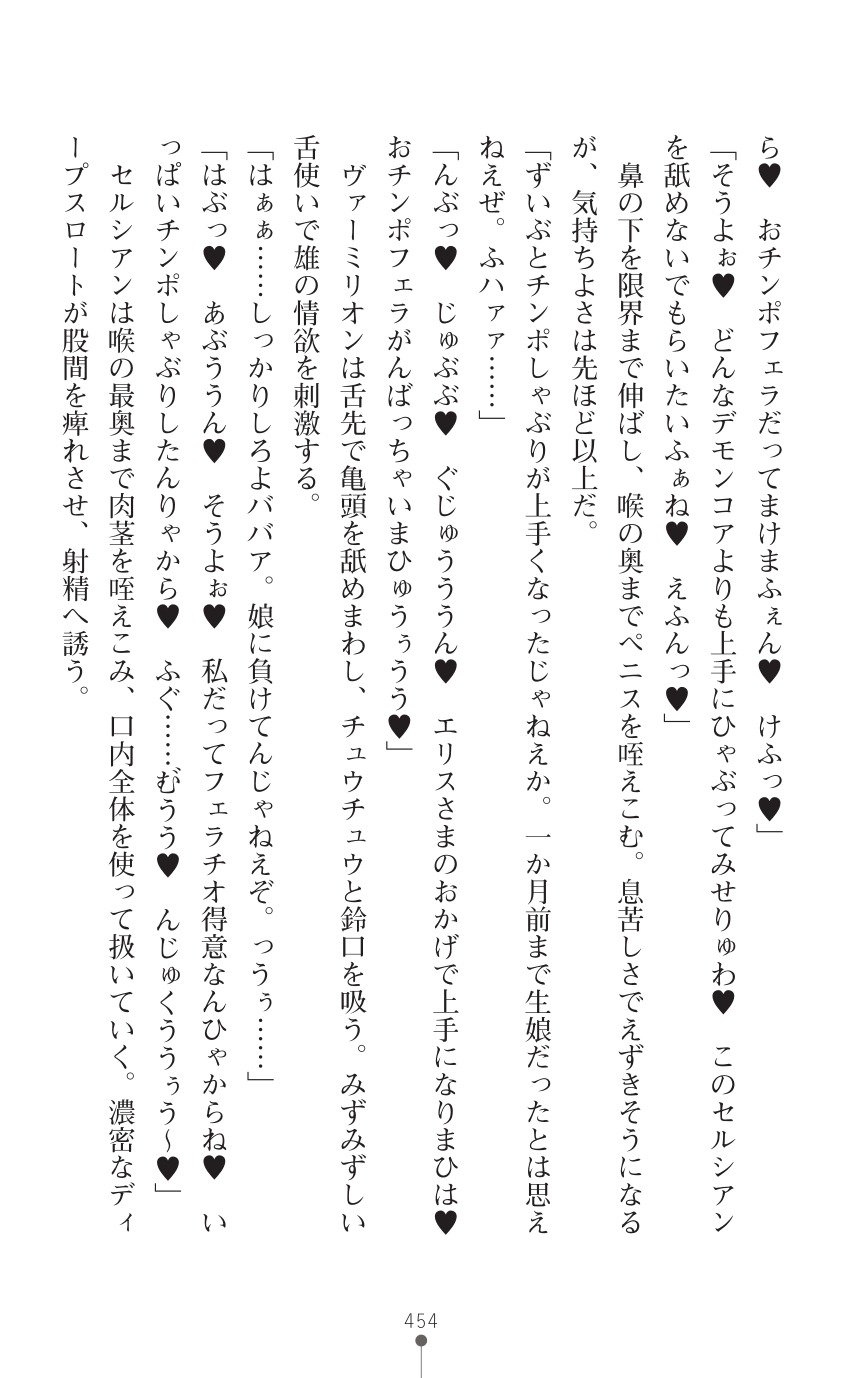 ら♥　おチンポフェラだってまけまふぇん♥　けふっ♥」
「そうよぉ♥　どんなデモンコアよりも上手にひゃぶってみせりゅわ♥　このセルシアン
を舐めないでもらいたいふぁね♥　えふんっ♥」
　鼻の下を限界まで伸ばし、喉の奥までペニスを咥えこむ。息苦しさでえずきそうになる
が、気持ちよさは先ほど以上だ。
「ずいぶとチンポしゃぶりが上手くなったじゃねえか。一か月前まで生娘だったとは思え
ねえぜ。ふハァァ……」
「んぶっ♥　じゅぶぶ♥　ぐじゅうううん♥　エリスさまのおかげで上手になりまひは♥
おチンポフェラがんばっちゃいまひゅうぅうう♥」
　ヴァーミリオンは舌先で亀頭を舐めまわし、チュウチュウと鈴口を吸う。みずみずしい
舌使いで雄の情欲を刺激する。
「はぁぁ……しっかりしろよババア。娘に負けてんじゃねえぞ。っうぅ……」
「はぶっ♥　あぶううん♥　そうよぉ♥　私だってフェラチオ得意なんひゃからね♥　い
っぱいチンポしゃぶりしたんりゃから♥　ふぐ……む゛うう♥　んじゅくううぅう～♥」
　セルシアンは喉の最奥まで肉茎を咥えこみ、口内全体を使って扱いていく。濃密なディ
ープスロートが股間を痺れさせ、射精へ誘う。
454